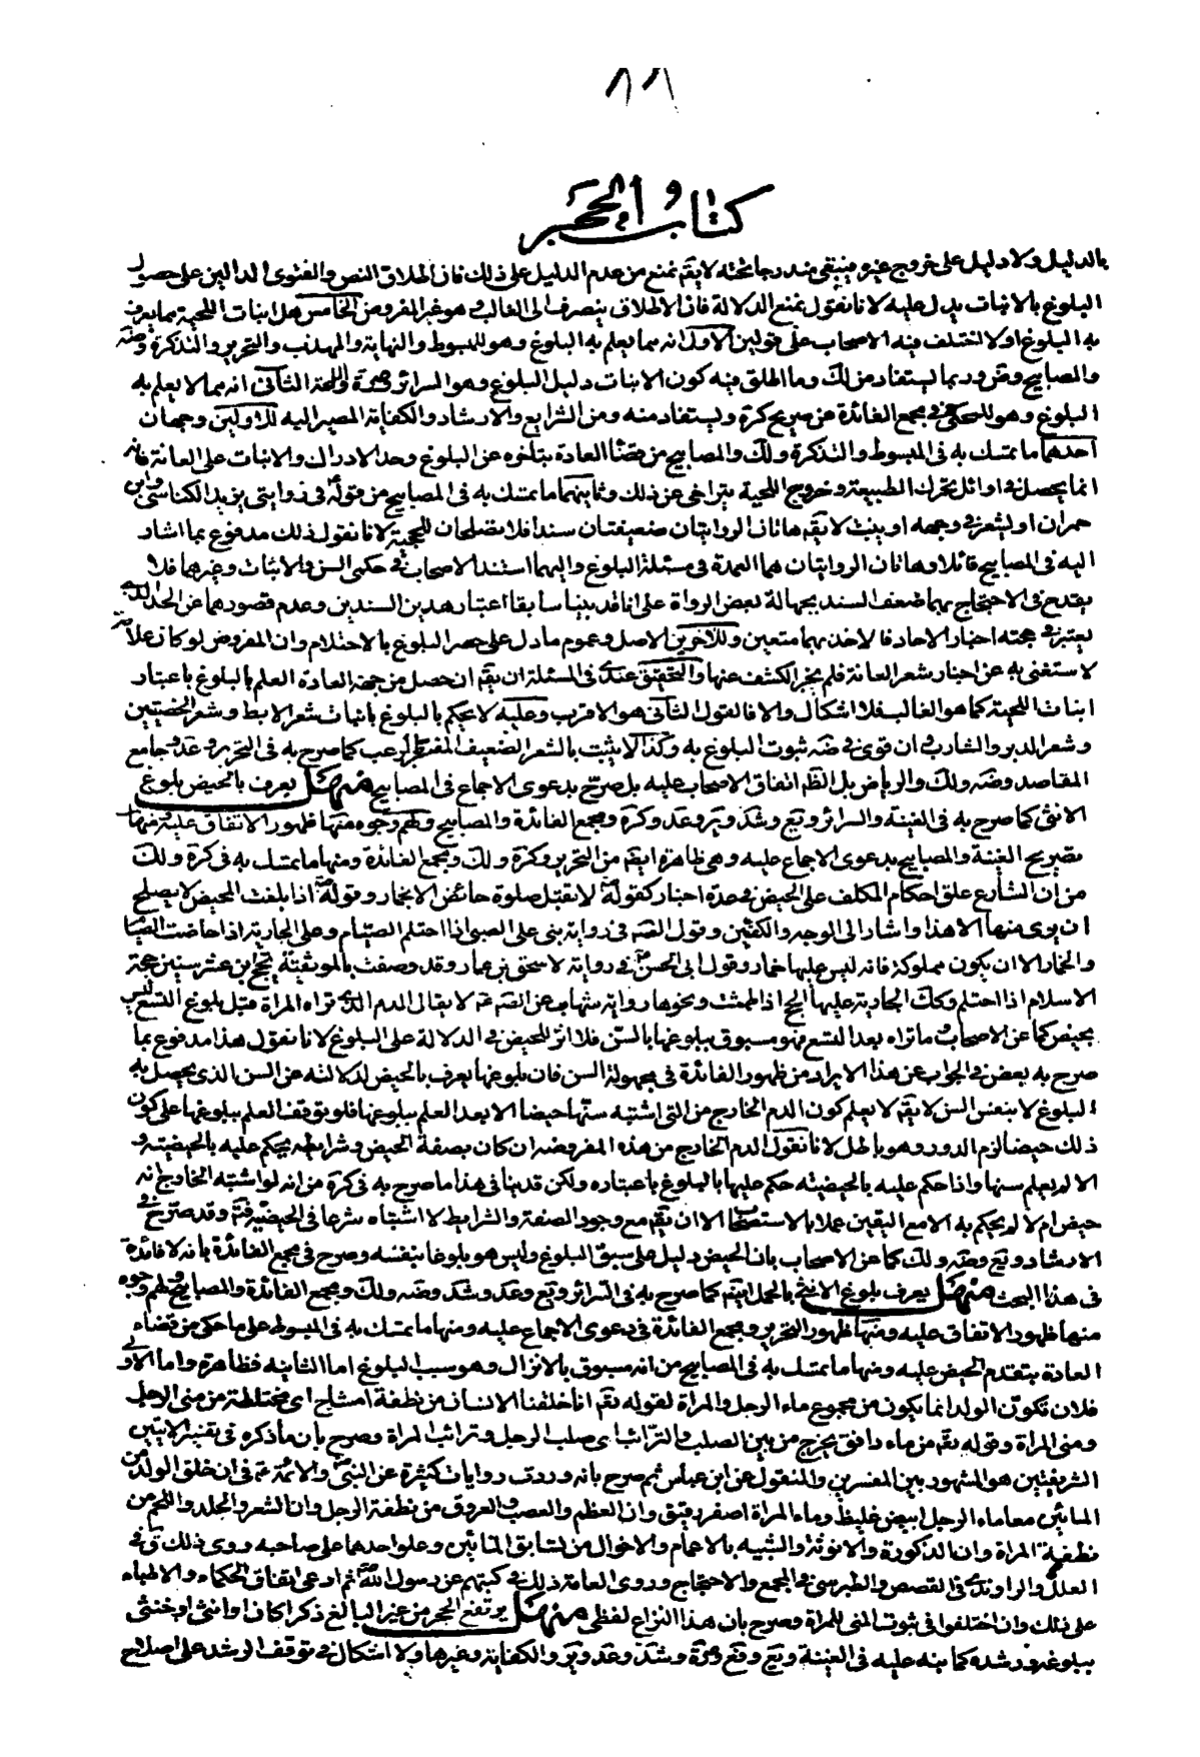 ٨٨
كتاب الحجر
بالدليل ولا دليل على خروج غيره فيبقى مندرجا تحته لا يقم نمنع من عدم الدليل على ذلك فان اطلاق النص والفتوى الدالين على حصول
البلوغ بالانبات يدل عليه لانا نقول نمنع الدلالة فان الاطلاق ينصرف الى الغالب وهو غير المفروض الخامس هل انبات اللحية مما يعرف
به البلوغ او لا اختلف فيه الاصحاب على قولين الاول انه مما يعلم به البلوغ وهو للمبسوط والنهاية والمهذب والتحرير والتذكرة وضه
والمصابيح وربما يستفاد من لك وما اطلق فيه كون الانبات دليل البلوغ وهو السرائر واللمعة الثاني انه مما لا يعلم به
البلوغ وهو للمحكي في مجمع الفائدة عن صريح كره ويستفاد منه ومن الشرايع والارشاد والكفاية المصير اليه للاولين وجهان
احدهما ما تمسك به في المبسوط والتذكرة ولك والمصابيح من قضاء العادة بتاخره عن البلوغ وحد الادراك والانبات على العانة فانه
انما يحصل في اوائل تحرك الطبيعة وخروج اللحية يتراخى عن ذلك وثانيهما ما تمسك به في المصابيح من قوله في روايتي يزيد الكناسي وابن
حمران او يشعر في وجهه او ينبت لا يقم هاتان الروايتان ضعيفتان سندا فلا تصلحان للحجية لانا نقول ذلك مدفوع بما اشار
اليه في المصابيح قائلا وهاتان الروايتان هما العمدة في مسئلة البلوغ واليهما استند الاصحاب في حكمى السن والانبات وغيرهما فلا
يقدح في الاحتجاج بهما ضعف السند بجهالة لبعض الرواة على انا قد بينا سابقا اعتبار هذين السندين وعدم قصورهما عن الحد الذي
يعتبر في حجته اخبار الاحاد فالاخذ بهما متعين وللاخرين الاصل وعموم ما دل على حصر البلوغ بالاحتلام وان المفروض لو كان علامة
لاستغنى به عن اختبار شعر العانة فلم يجز الكشف عنها والتحقيق عندى في المسئلة ان يقم ان حصل من جهة العادة العلم بالبلوغ باعتبار
انبات اللحية كما هو الغالب فلا اشكال والا فالقول الثاني هو الاقرب وعليه لا يحكم بالبلوغ بانبات شعر الابط وشعر الخصيتين
وشعر الدبر والشارب وان قوى في ضه ثبوت البلوغ به وكذا لا يثبت بالشعر الضعيف المفتقر الزغب كما صرح به في التحرير وعد وجامع
المقاصد وضه ولك والرياض بل الظم اتفاق الاصحاب عليه بل صرح بدعوى الاجماع في المصابيح منهل يعرف بالحيض بلوغ
الانثى كما صرح به في الغنية والسرائر ويع وشد وير وعد وكره ومجمع الفائدة والمصابيح ولهم وجوه منها ظهور الاتفاق عليه ومنها
تصريح الغنية والمصابيح بدعوى الاجماع عليه وهي ظاهرة ايقم من التحرير وكره ولك ومجمع الفائدة ومنها ما تمسك به في كره ولك
من ان الشارع علق احكام المكلف على الحيض في عدة اخبار كقوله لا تقبل صلوة حائض الا بخمار وقوله اذا بلغت المحيض لا يصلح
ان يرى منها الا هذا واشار الى الوجه والكفين وقول الصم في رواية بنى على الصبى اذا احتلم الصيام وعلى الجارية اذا حاضت الصيام
والخمار الا ان يكون مملوكة فانه ليس عليها خمار وقول ابى الحسن في رواية لاسحق بن عمار وقد وصفت بالموثقية يحج ابن عشر سنين حجة
الاسلام اذا احتلم وكك الجارية عليها الحج اذا طمثت ونحوها رواية شهاب عن الصم ع لا يقال الدم الذي تراه المراة قبل بلوغ التسع ليس
بحيض كما عن الاصحاب وما تراه بعد التسع فهو مسبوق ببلوغها بالسن فلا اثر للحيض في الدلالة على البلوغ لانا نقول هذا مدفوع بما
صرح به بعض في الجواب عن هذا الايراد من ظهور الفائدة في مجهولة السن فان بلوغها يعرف بالحيض لدلالته عن السن الذي يحصل به
البلوغ لا بنفس السن لا يقم لا يعلم كون الدم الخارج من التي اشتبه سنها حيضا الا بعد العلم ببلوغها فلو توقف العلم ببلوغها على كون
ذلك حيضا لزم الدور وهو باطل لانا نقول الدم الخارج من هذه المفروضة ان كان بصفة الحيض وشرايطه يحكم عليه بالحيضية و
الا لم يعلم سنها واذا حكم عليه بالحيضية حكم عليها بالبلوغ باعتباره ولكن قد ينافي هذا ما صرح به في كره من انه لو اشتبه الخارج انه
حيض ام لا لم يحكم به الا مع اليقين عملا بالاستصحاب الا ان يقم مع وجود الصفة والشرايط لا اشتباه شرعا في الحيضية فتم وقد صرح في
الارشاد ويع وضه ولك كما عن الاصحاب بان الحيض دليل على سبق البلوغ وليس هو بلوغا بنفسه وصرح في مجمع الفائدة بانه لا فائدة
في هذا البحث منهل يعرف بلوغ الانثى بالحمل ايقم كما صرح به في السرائر ويع وعد وشد وضه ولك ومجمع الفائدة والمصابيح ولهم وجوه
منها ظهور الاتفاق عليه ومنها ظهور التحرير ومجمع الفائدة في دعوى الاجماع عليه ومنها ما تمسك به في المبسوط على ما حكى من قضاء
العادة بتقدم الحيض عليه ومنها ما تمسك به في المصابيح من انه مسبوق بالانزال وهو سبب البلوغ اما الثانية فظاهرة واما الاولى
فلان تكون الولد انما يكون من مجموع ماء الرجل والمراة لقوله تقم انا خلقنا الانسان من نطفة امشاج اى مختلطة من منى الرجل
ومنى المراة وقوله تقم من ماء دافق يخرج من بين الصلب والترائب اى صلب الرجل وترائب المراة وصرح بان ما ذكره في تفسير الايتين
الشريفتين هو المشهور بين المفسرين والمنقول عن ابن عباس ثم صرح بانه وردت روايات كثيرة عن النبي والائمة ع في ان خلق الولد من
المائين معا ماء الرجل ابيض غليظ وماء المراة اصفر رقيق وان العظم والعصب والعروق من نطفة الرجل وان الشعر والجلد واللحم من
نطفة المراة وان الذكورة والانوثة والشبيه بالاعمام والاخوال من تسابق المائين وعلو احدهما على صاحبه روى ذلك في
العلل والراوندي في القصص والطبرسي في المجمع والاحتجاج وروى العامة ذلك في كتبهم عن رسول الله ثم ادعى اتفاق الحكماء والاطباء
على ذلك وان اختلفوا في ثبوت المنى للمراة وصرح بان هذا النزاع لفظى منهل يرتفع الحجر من غير البالغ ذكرا كان او انثى او خنثى
ببلوغه ورشده كما نبه عليه في الغنية ويع وفع وكره وشد وعد وير والكفاية وغيرها ولا اشكال في توقف الرشد على اصلاح